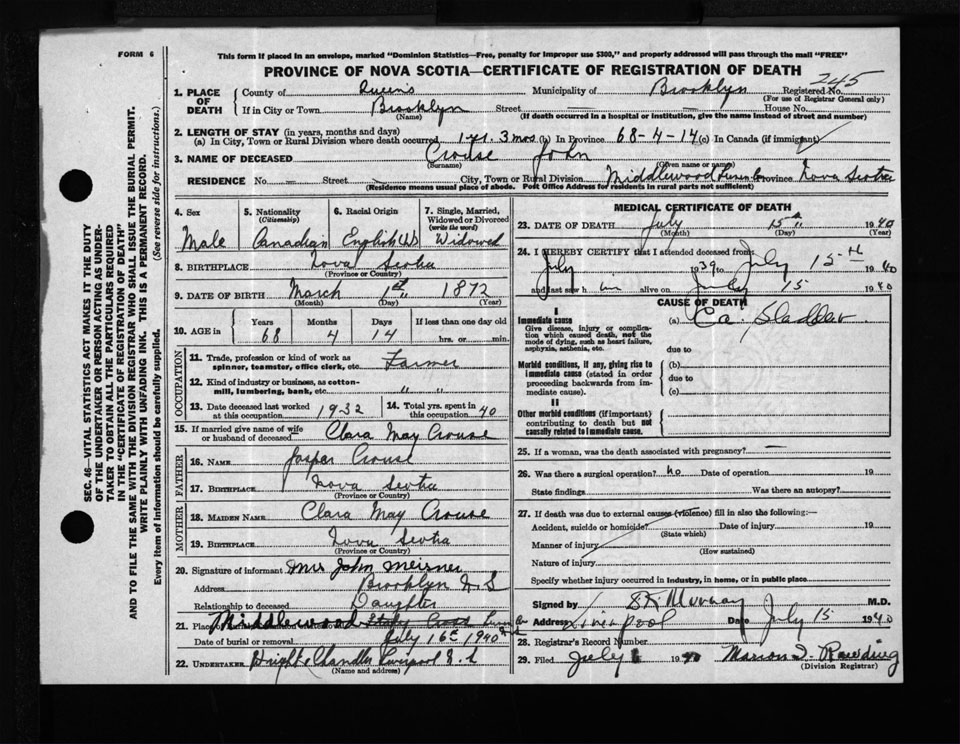 FORM 6
This form if placed in an envelope, marked "Dominion Statistics—Free, penalty for improper use $300," and properly addressed will pass through the mail "FREE"
PROVINCE OF NOVA SCOTIA—CERTIFICATE OF REGISTRATION OF DEATH
245
1. PLACE OF DEATH County of Queen's Municipality of Brooklyn Registered No.
(For use of Registrar General only)
If in City or Town Brooklyn Street House No.
(Name) (If death occurred in a hospital or institution, give the name instead of street and number)
2. LENGTH OF STAY (in years, months and days)
(a) In City, Town or Rural Division where death occurred 1 yr. 3 mos (b) In Province 68-4-14 (c) In Canada (if immigrant)
3. NAME OF DECEASED Crouse John
(Surname) (Given name or names)
RESIDENCE No. — Street — City, Town or Rural Division Middlewood Province Nova Scotia
(Residence means usual place of abode. Post Office Address for residents in rural parts not sufficient)
4. Sex Male
5. Nationality (Citizenship) Canadian
6. Racial Origin English
7. Single, Married, Widowed or Divorced (write the word) Widowed
8. BIRTHPLACE Nova Scotia
(Province or Country)
9. DATE OF BIRTH March 1st 1872
(Month) (Day) (Year)
10. AGE in Years 68 Months 4 Days 14 If less than one day old hrs. or min.
OCCUPATION
11. Trade, profession or kind of work as spinner, teamster, office clerk, etc. Farmer
12. Kind of industry or business, as cotton-mill, lumbering, bank, etc. " "
13. Date deceased last worked at this occupation 1932
14. Total yrs. spent in this occupation 40
15. If married give name of wife or husband of deceased Clara May Crouse
FATHER
16. NAME Jasper Crouse
17. BIRTHPLACE Nova Scotia
(Province or Country)
MOTHER
18. MAIDEN NAME Clara May Crouse
19. BIRTHPLACE Nova Scotia
(Province or Country)
20. Signature of informant Mrs John Meisner
Address Brooklyn N.S
Relationship to deceased Daughter
21. Place of Middlewood
Date of burial or removal July 16th 1940
22. UNDERTAKER Wright & Chandler Liverpool N.S
(Name and address)
MEDICAL CERTIFICATE OF DEATH
23. DATE OF DEATH July 15th 1940
(Month) (Day) (Year)
24. I HEREBY CERTIFY that I attended deceased from
July 1939 to July 15th 1940
and last saw h im alive on July 15 1940
CAUSE OF DEATH
I
Immediate cause (a) Ca. Bladder
Give disease, injury or complication which caused death, not the mode of dying, such as heart failure, asphyxia, asthenia, etc.
due to
Morbid conditions, if any, giving rise to immediate cause (stated in order proceeding backwards from immediate cause).
(b)
due to
(c)
II
Other morbid conditions (if important) contributing to death but not causally related to immediate cause.
25. If a woman, was the death associated with pregnancy? —
26. Was there a surgical operation? No Date of operation 19
State findings Was there an autopsy?
27. If death was due to external causes (violence) fill in also the following:—
Accident, suicide or homicide? Date of injury 19
(State which)
Manner of injury
(How sustained)
Nature of injury
Specify whether injury occurred in industry, in home, or in public place
Signed by Murray M.D.
Address Liverpool Date July 15 1940
28. Registrar's Record Number
29. Filed July 1940 Marion
(Division Registrar)
SEC. 46—VITAL STATISTICS ACT MAKES IT THE DUTY
OF THE UNDERTAKER OR PERSON ACTING AS UNDER-
TAKER TO OBTAIN ALL THE PARTICULARS REQUIRED
IN THE "CERTIFICATE OF REGISTRATION OF DEATH"
AND TO FILE THE SAME WITH THE DIVISION REGISTRAR WHO SHALL ISSUE THE BURIAL PERMIT.
WRITE PLAINLY WITH UNFADING INK. THIS IS A PERMANENT RECORD.
Every item of Information should be carefully supplied. (See reverse side for instructions.)